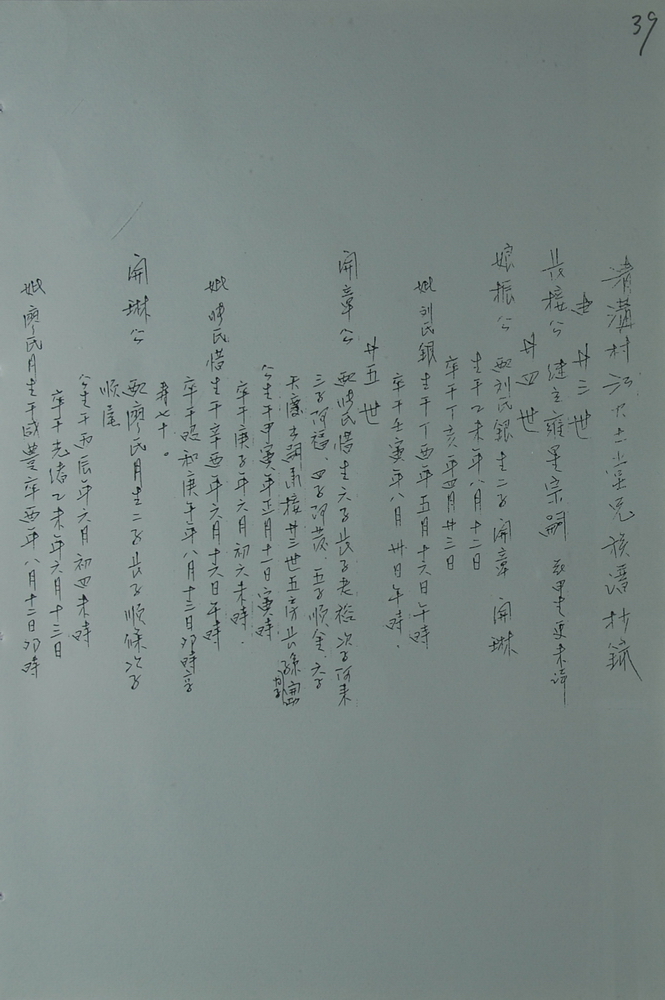 39
清溝村江大士堂兄族譜抄錄
廿三世
長樓公 繼立雍星宗嗣
廿四世
娘振公 配刘氏銀生二子開章 開琳
生于乙未年八月十二日
卒于丁亥年四月廿三日
妣刘氏銀生于丁酉年五月十六日午時
卒于壬寅年八月卅日午時.
廿五世
開章公 配 氏惜生六子長子老裕次子阿未
三子阿福 四子阿茂 五子順金 六子
天慶出嗣 廿三世五房長孫
公生于甲寅年正月十一日寅時
卒于庚子年六月初六未時.
妣 氏惜生于辛酉年六月十六日午時
卒于昭和庚午年八月十三日卯時享
寿七十。
開琳公 配廖氏月生二子長子順條次子
順居
公生于丙辰年六月初四未時
卒于光緒乙未年六月十三日
妣廖氏月生于咸豊辛酉年八月十二日卯時